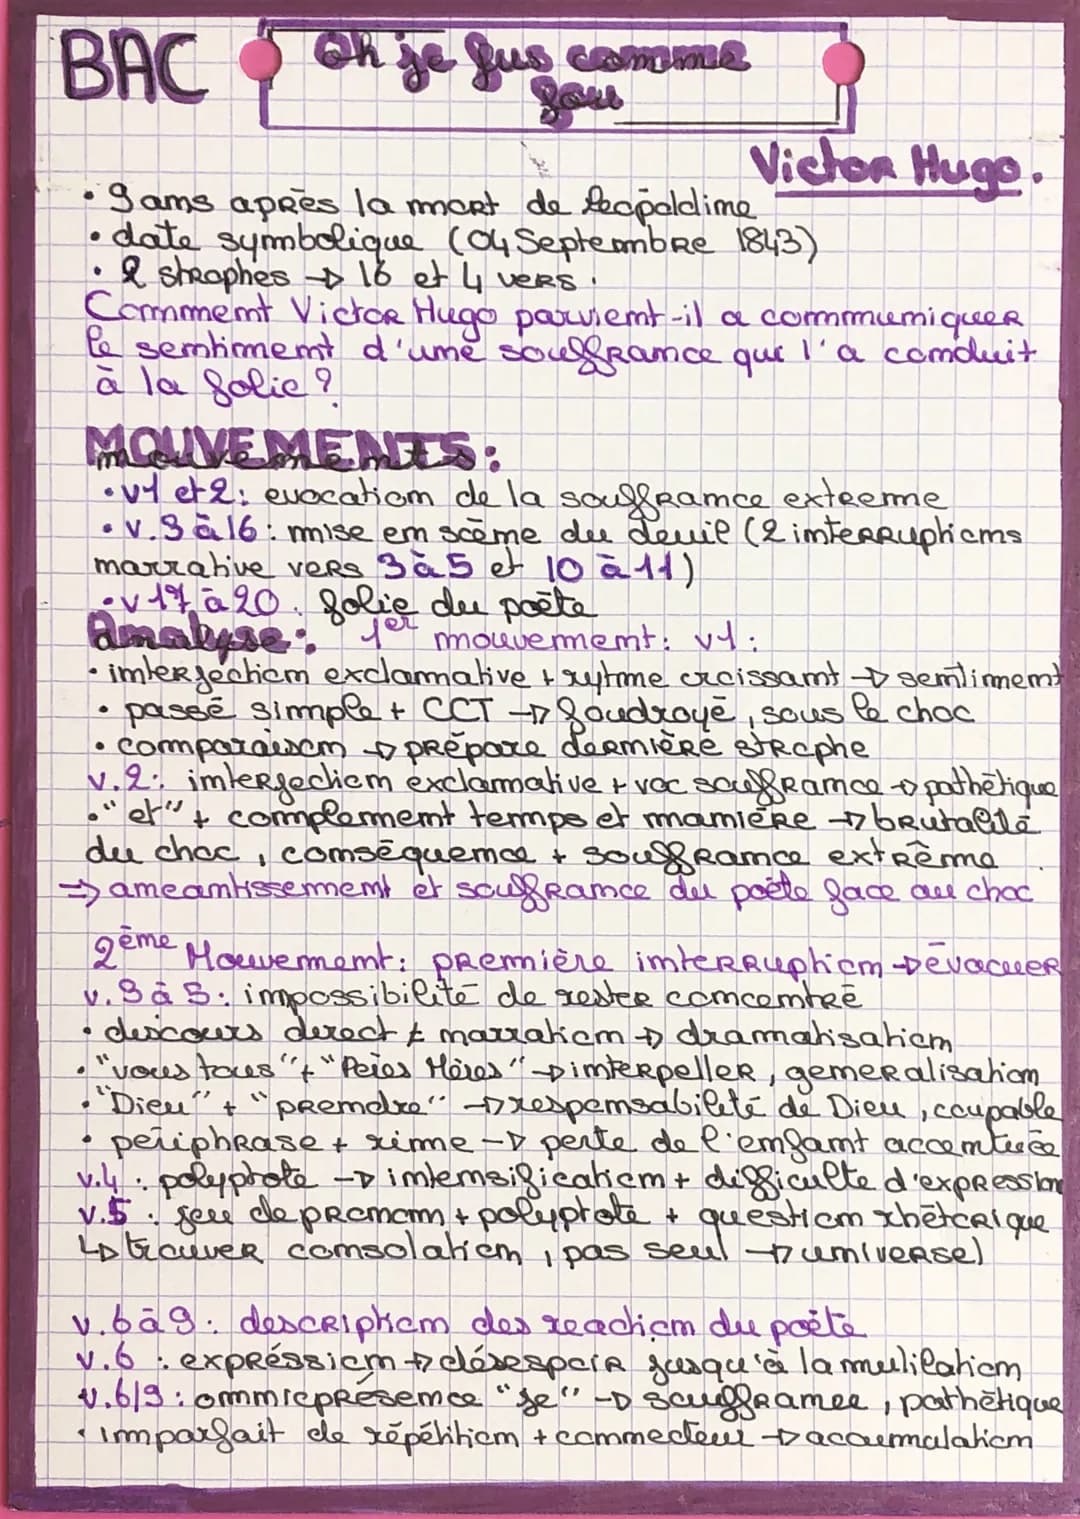 BAC
Oh je fus comme
fou
Victor Hugo.
• 9 ans après la mort de Léopoldine
• date symbolique (04 Septembre 1843)
• 2 strophes → 16 et 4 vers.
Comment Victor Hugo parvient-il a communiquer
le sentiment d'une souffrance qui l'a conduit
à la folie ?
MOUVEMENTS:
mouvements
• v1 et 2: evocation de la souffrance exterme
• v.3 à 16: mise en scène du deuil (2 interruptions
narrative vers 3 à 5 et 10 à 11)
• v 17 à 20. folie du poète
Analyse: 1er mouvement: v1:
• interjection exclamative + rytme croissant → sentiment
• passé simple + CCT → foudroyé, sous le choc
• comparaison → prépare dernière strophe
v.2: interjection exclamative + voc souffrance → pathétique
• "et" + complement temps et manière → brutalité
du choc, conséquence + souffrance extrême
⇒ aneantissement et souffrance du poète face au choc
2ème Mouvement: première interruption → évacuer
v.3 à 5: impossibilité de rester concentré
• discours direct ≠ narration → dramatisation
• "vous tous" + "Pères Mères" → interpeller, generalisation
• "Dieu" + "prendre" → responsabilité de Dieu, coupable
• périphrase + rime → perte de l'enfant accentuée
v.4: polyptote → intensification + difficulté d'expression
v.5: jeu de pronom + polyptote + question rhétorique
↳ trouver consolation, pas seul → universel
v.6 à 9: description des reaction du poète
v.6: expréssion → désespoir jusqu'à la mulilation
v.6/9: omniprésence "je" → souffrance, pathétique
• imparfait de répétition + connecteur → accumulation